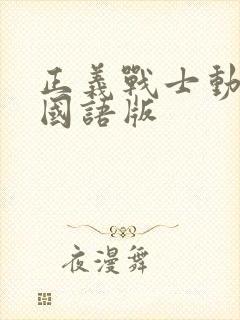 正義戰士動
國語版
夜漫舞